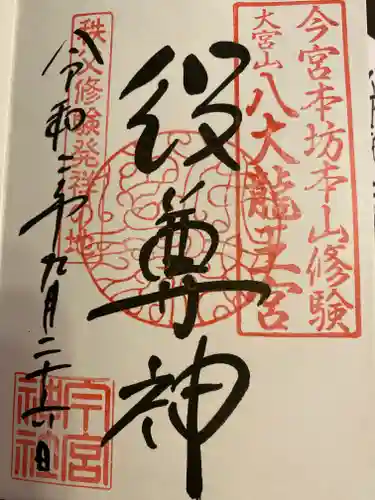 今宮本坊本山修験
大宮山
八大龍王宮
役尊神
秩父修験発祥の地
令和二年九月二十六日
今宮神社